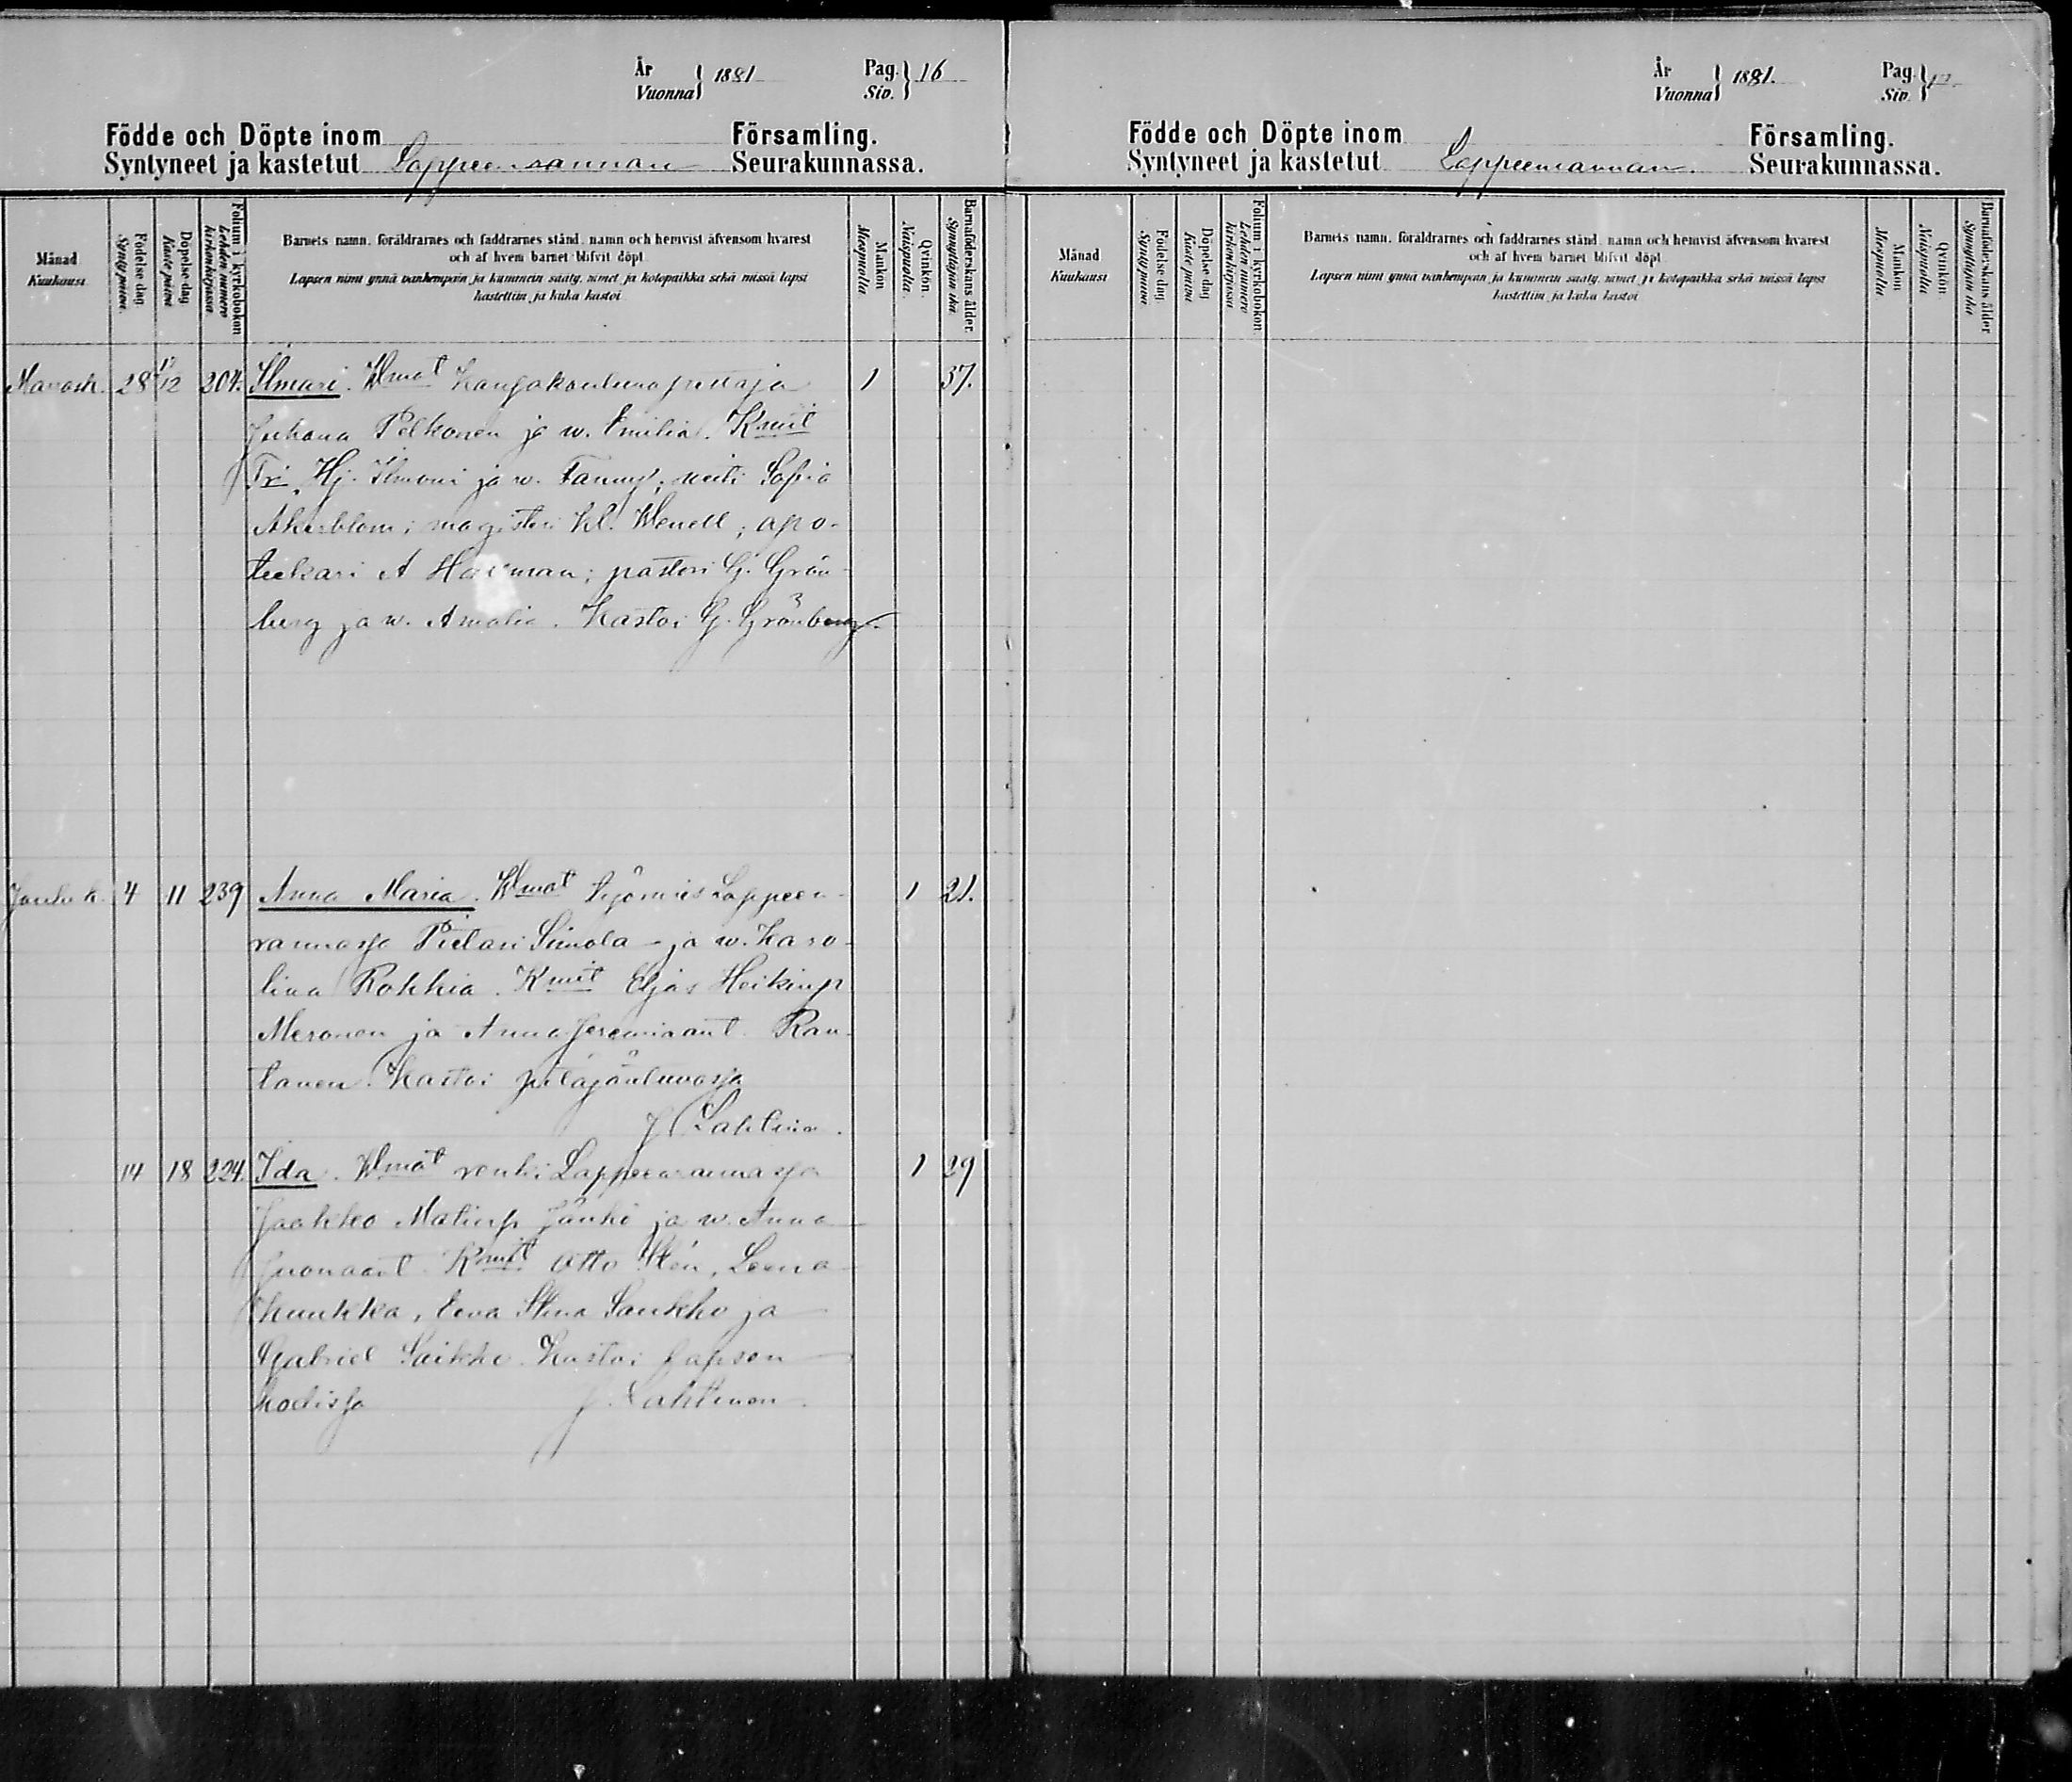 År
Vuonna } 1881
Pag.
Siv. } 16
Födde och Döpte inom Församling.
Syntyneet ja kastetut Lappeenrannan Seurakunnassa.
Månad
Kuukausi
Födelse dag
Syntypäivä
Döpelse dag
Kaste päivä
Folium i kyrkobokon
Lehden numero kirkonkirjassa
Barnets namn, föräldrarnes och faddrarnes stånd, namn och hemvist äfvensom hvarest
och af hvem barnet blifvit döpt
Lapsen nimi ynnä vanhempain ja kummein sääty, nimet ja kotopaikka sekä missä lapsi
kastettiin ja kuka kastoi
Mankön
Miespuolia
Qvinkön.
Naispuolia
Barnaföderskans ålder.
Synnyttäjän ikä
Marrask. 28 1/12 204. Ilmari. Wmat Kansakoulunopettaja 1 37.
Juhana Pelkonen ja w. Emilia. Kmit
Tri Hj. Ilmoni ja w. Fanny; neiti Sofia
Åkerblom; magisteri Kl. Wenell; apo-
teekari A Ha man; pastori G. Grön-
berg ja w. Amalia. Kastoi G. Grönberg.
Jouluk. 4 11 239 Anna Maria. Wmat työmies Lappeen- 1 21.
rannassa Pietari Simola ja w. Karo-
lina Rokkia. Kmit Eljas Heikinp
Meronen ja Anna Jeremiaant. Ran-
tanen. Kastoi pitäjäntuvassa
J Lahtinen.
14 18 224. Ida. Wmat renki Lappeenrannassa 1 29
Jaakko Matinp. Jänkö ja w. Anna
Juonaant. Kmit Otto Stén, Leena
Kuukka, Eeva Stina Saukko ja
Gabriel Saikko. Kastoi lapson
kodissa J. Lahtinen.
År
Vuonna } 1881.
Pag.
Siv. } 17.
Födde och Döpte inom Församling.
Syntyneet ja kastetut Lappeenrannan. Seurakunnassa.
Månad
Kuukausi
Födelse dag
Syntypäivä
Döpelse dag
Kaste päivä
Folium i kyrkobokon
Lehden numero kirkonkirjassa
Barnets namn, föräldrarnes och faddrarnes stånd, namn och hemvist äfvensom hvarest
och af hvem barnet blifvit döpt
Lapsen nimi ynnä vanhempain ja kummein sääty, nimet ja kotopaikka sekä missä lapsi
kastettiin ja kuka kastoi
Mankön
Miespuolia
Qvinkön
Naispuolia
Barnaföderskans ålder
Synnyttäjän ikä